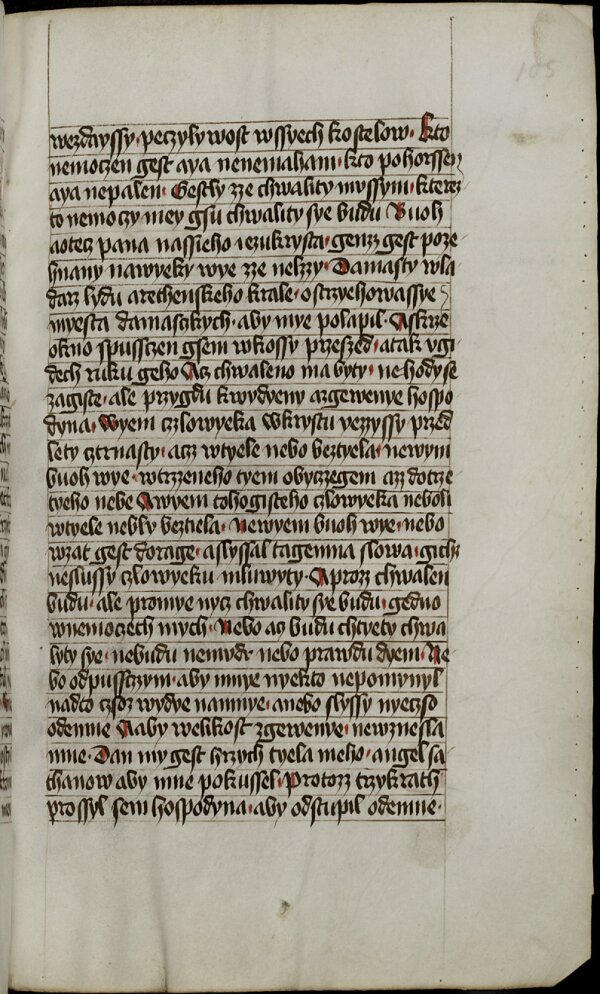 105
wezdayssy · peczyly wost wssyech kostelow · kto
nemoczen gest aya nenemaham · kto pohorssen
aya nepalen · Gestly zze chwality mussym · kterez
to nemoczy mey gsu chwality sye budu Buoh
aotecz pana nassieho iezukrysta · genzz gest poze
hnany nawyeky wye zze nelzzy · Damasty wla
darz lydu arethenskeho krale · ostrzyehowassye
myesta damasczkych · aby mye polapil · Askrze
okno spussczen gsem wkossy przeszed · atak vgi
dech ruku geho Acz chwaleno ma byty · nehody se
zagiste · ale przygdu kwydyeny azgewenye hospo
dyna · Wyem czlowyeka wkrystu wezzyssy przed
lety cztrnasty · acz wtyele nebo beztyela · newym
buoh wye · wtrzeneho tyem obyczegem azz dotrze
tyeho nebe Awyem tohogisteho czlowyeka neboli
wtyele nebly beztiela · Newyem buoh wye · nebo
wzat gest dorage · aslyssal tagemna slowa · gichz
neslussy czlowyeku mluwyty · Aprozz chwalen
budu · ale promye nycz chwality sye budu · gedno
wnemoczech mych · Nebo acz budu chtyety chwa
lyty sye · nebudu nemudr nebo prawdu dyem · Ne
bo odpussczym · aby mnye nyekto nepomynyl
nadto czsoz wydye namnye · anebo slyssy nyeczso
odemne Aaby welikost zgewenye · newznesla
mne · Dan my gest hrzych tyela meho · angel sa
thanow aby mne pokussel · Protozz trzykrath
prossyl sem hospodyna · aby odstupil odemne ·